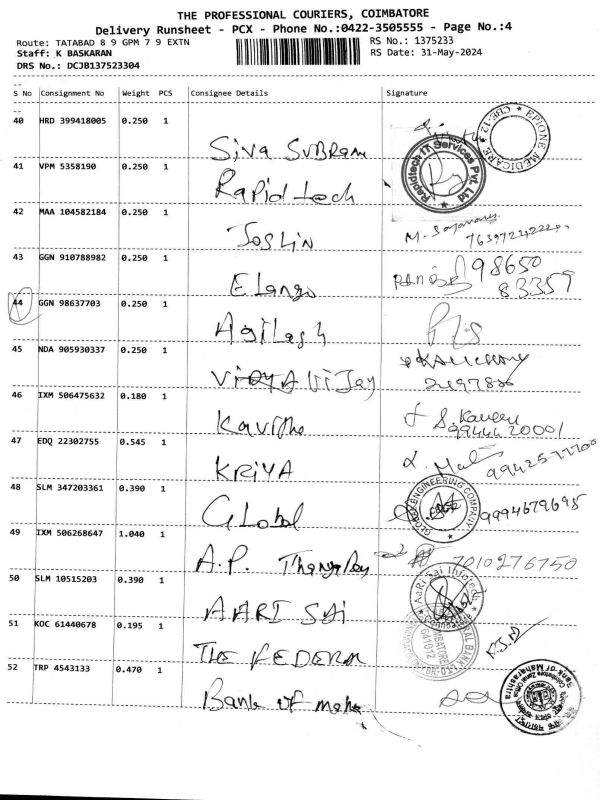 THE PROFESSIONAL COURIERS, COIMBATORE
Delivery Runsheet - PCX - Phone No.:0422-3505555 - Page No.:4
Route: TATABAD 8 9 GPM 7 9 EXTN RS No.: 1375233
Staff: K BASKARAN RS Date: 31-May-2024
DRS No.: DCJB137523304
S No Consignment No Weight PCS Consignee Details Signature
40 HRD 399418005 0.250 1 Siva Subram
CBE-12 * EPIONE MEDICARE *
41 VPM 5358190 0.250 1 Rapid tech
Rapidtech IT Services Pvt. Ltd
42 MAA 104582184 0.250 1 Joslin M.
43 GGN 910788982 0.250 1 Elango 98650
83359
44 GGN 98637703 0.250 1 Agilash
45 NDA 905930337 0.250 1 VIDYA Vijay
46 IXM 506475632 0.180 1 Kavitha
9944420001
47 EDQ 22302755 0.545 1 KRIYA
48 SLM 347203361 0.390 1 Global 9994679695
ENGINEERING COMPANY
49 IXM 506268647 1.040 1 A.P. 7010276750
50 SLM 10515203 0.390 1 AARI SAI
Aari Sai Infotech
51 KOC 61440678 0.195 1 THE FEDERA
52 TRP 4543133 0.470 1 Bank of maha
Bank of Maharashtra
Coimbatore Zonal Office